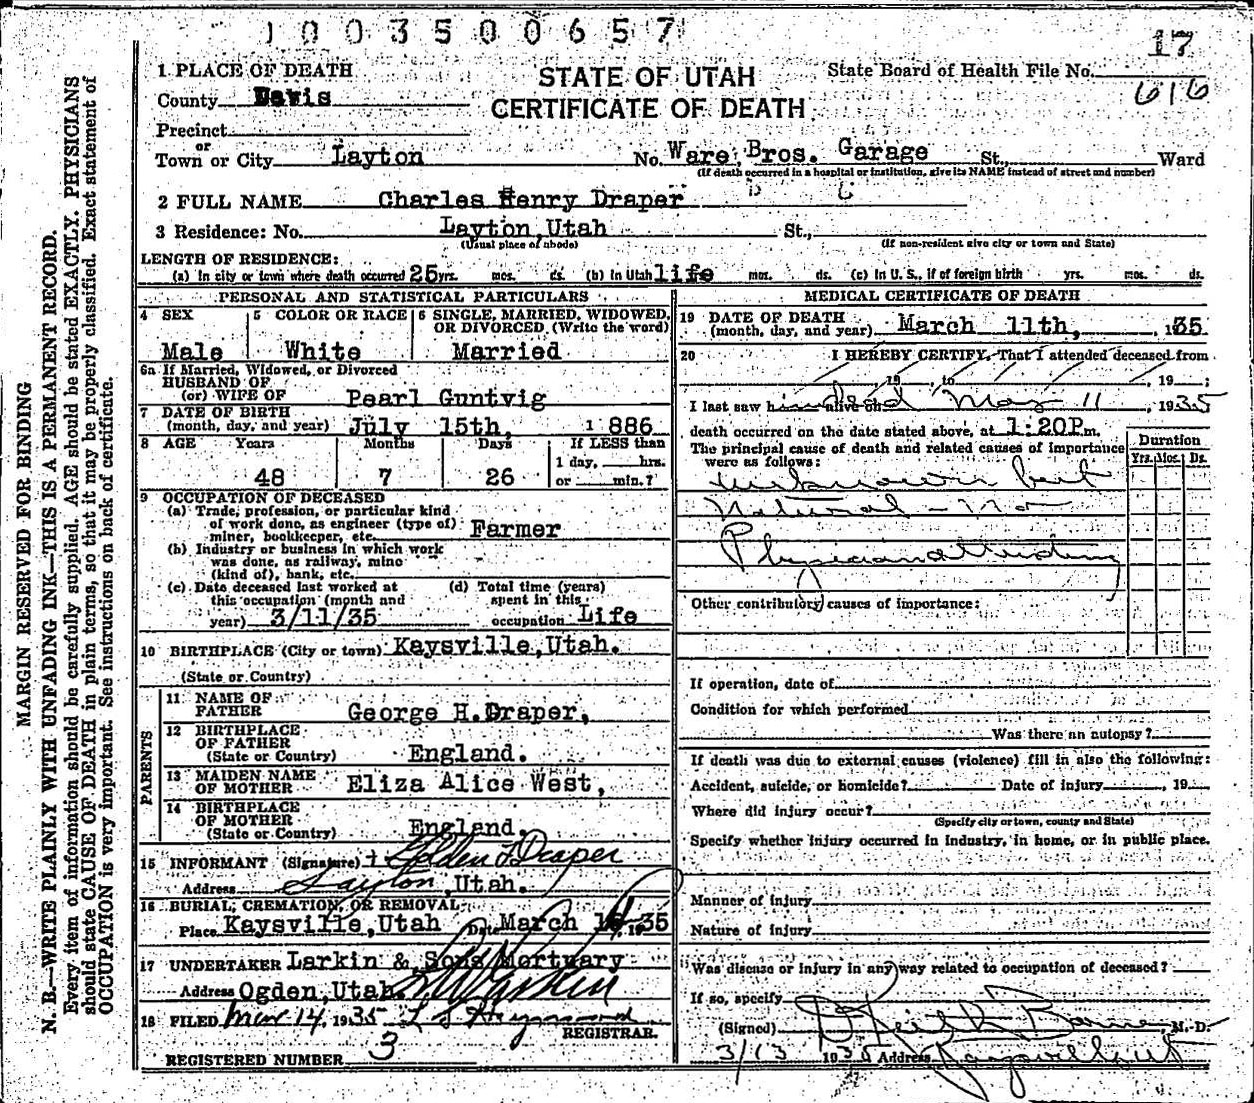 1003500657
17
1 PLACE OF DEATH
STATE OF UTAH
State Board of Health File No.
County Davis
CERTIFICATE OF DEATH
616
Precinct
or
Town or City Layton No. Ware Bros. Garage St., Ward
(If death occurred in a hospital or institution, give its NAME instead of street and number)
2 FULL NAME Charles Henry Draper
3 Residence: No. Layton, Utah St.,
(Usual place of abode) (If non-resident give city or town and State)
LENGTH OF RESIDENCE:
(a) In city or town where death occurred 25 yrs. mos. ds. (b) In Utah life mos. ds. (c) In U. S., if of foreign birth yrs. mos. ds.
PERSONAL AND STATISTICAL PARTICULARS
4 SEX 5 COLOR OR RACE 6 SINGLE, MARRIED, WIDOWED,
OR DIVORCED (Write the word)
Male White Married
6a If Married, Widowed, or Divorced
HUSBAND OF
(or) WIFE OF Pearl Guntvig
7 DATE OF BIRTH
(month, day, and year) July 15th, 1886
8 AGE Years Months Days If LESS than
1 day, hrs.
48 7 26 or min.?
9 OCCUPATION OF DECEASED
(a) Trade, profession, or particular kind
of work done, as engineer (type of)
miner, bookkeeper, etc. Farmer
(b) Industry or business in which work
was done, as railway, mine
(kind of), bank, etc.
(c) Date deceased last worked at (d) Total time (years)
this occupation (month and spent in this
year) 3/11/35 occupation Life
10 BIRTHPLACE (City or town) Kaysville, Utah.
(State or Country)
PARENTS
11 NAME OF
FATHER George H. Draper,
12 BIRTHPLACE
OF FATHER
(State or Country) England.
13 MAIDEN NAME
OF MOTHER Eliza Alice West,
14 BIRTHPLACE
OF MOTHER
(State or Country) England.
15 INFORMANT (Signature) Golden Draper
Address Layton, Utah.
16 BURIAL, CREMATION, OR REMOVAL,
Place Kaysville, Utah Date March 1935
17 UNDERTAKER Larkin & Sons Mortuary
Address Ogden, Utah.
18 FILED Mar 14, 1935 L S Heywood
REGISTRAR.
REGISTERED NUMBER 3
MEDICAL CERTIFICATE OF DEATH
19 DATE OF DEATH
(month, day, and year) March 11th, 1935
20 I HEREBY CERTIFY, That I attended deceased from
, 19 , to , 19 ;
I last saw him alive on dead Mar 11, 1935
death occurred on the date stated above, at 1:20P.m.
The principal cause of death and related causes of importance
were as follows:
Duration
Yrs. Mos. Ds.
unknown but
Natural - no
Physician attending
Other contributory causes of importance:
If operation, date of
Condition for which performed
Was there an autopsy?
If death was due to external causes (violence) fill in also the following:
Accident, suicide, or homicide? Date of injury , 19
Where did injury occur?
(Specify city or town, county and State)
Specify whether injury occurred in industry, in home, or in public place.
Manner of injury
Nature of injury
Was disease or injury in any way related to occupation of deceased?
If so, specify
(Signed) D Keith Barnes, M. D.
3/13 1935 Address Kaysville Ut
MARGIN RESERVED FOR BINDING
N. B.—WRITE PLAINLY WITH UNFADING INK—THIS IS A PERMANENT RECORD.
Every item of information should be carefully supplied. AGE should be stated EXACTLY. PHYSICIANS
should state CAUSE OF DEATH in plain terms, so that it may be properly classified. Exact statement of
OCCUPATION is very important. See instructions on back of certificate.